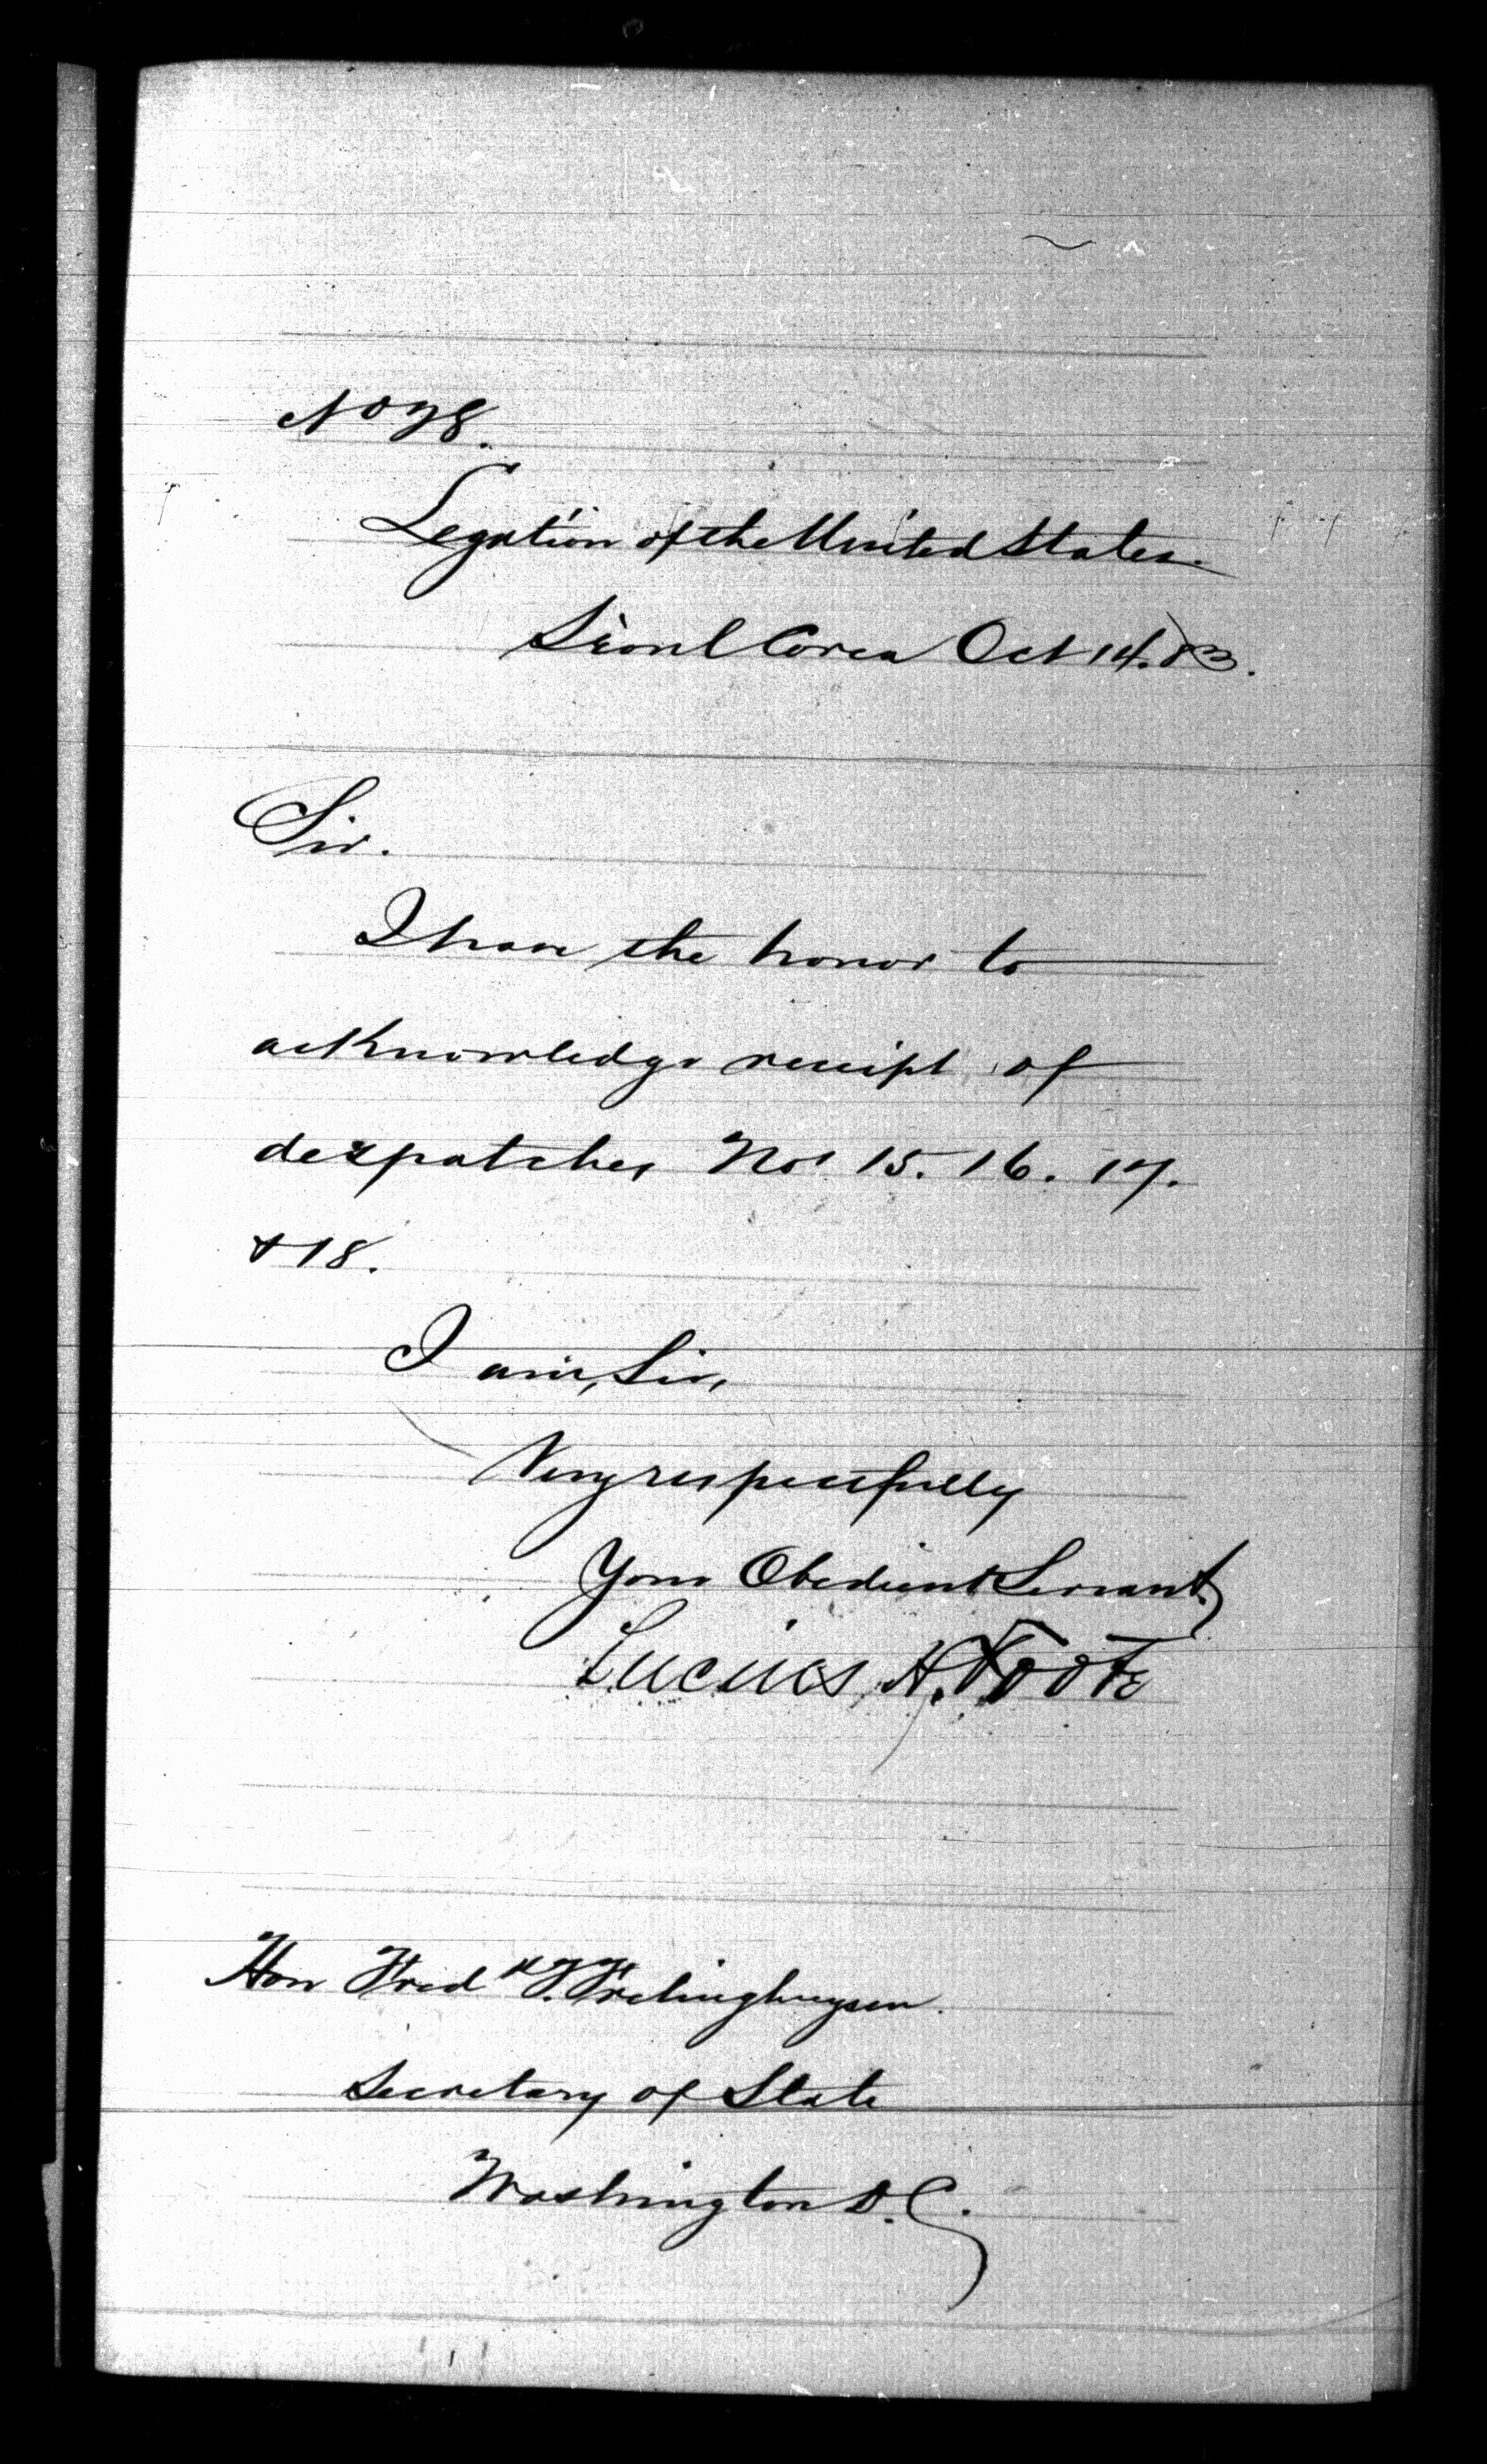 No 28.
Legation of the United States.
Séoul Corea Oct 14. 83.
Sir.
I have the honor to
acknowledge receipt of
despatches Nos 15. 16. 17.
& 18.
I am, Sir,
Very respectfully
Your Obedient Servant.
Lucius H. Foote
Hon Fred k T. Frelinghuysen.
Secretary of State
Washington D. C.